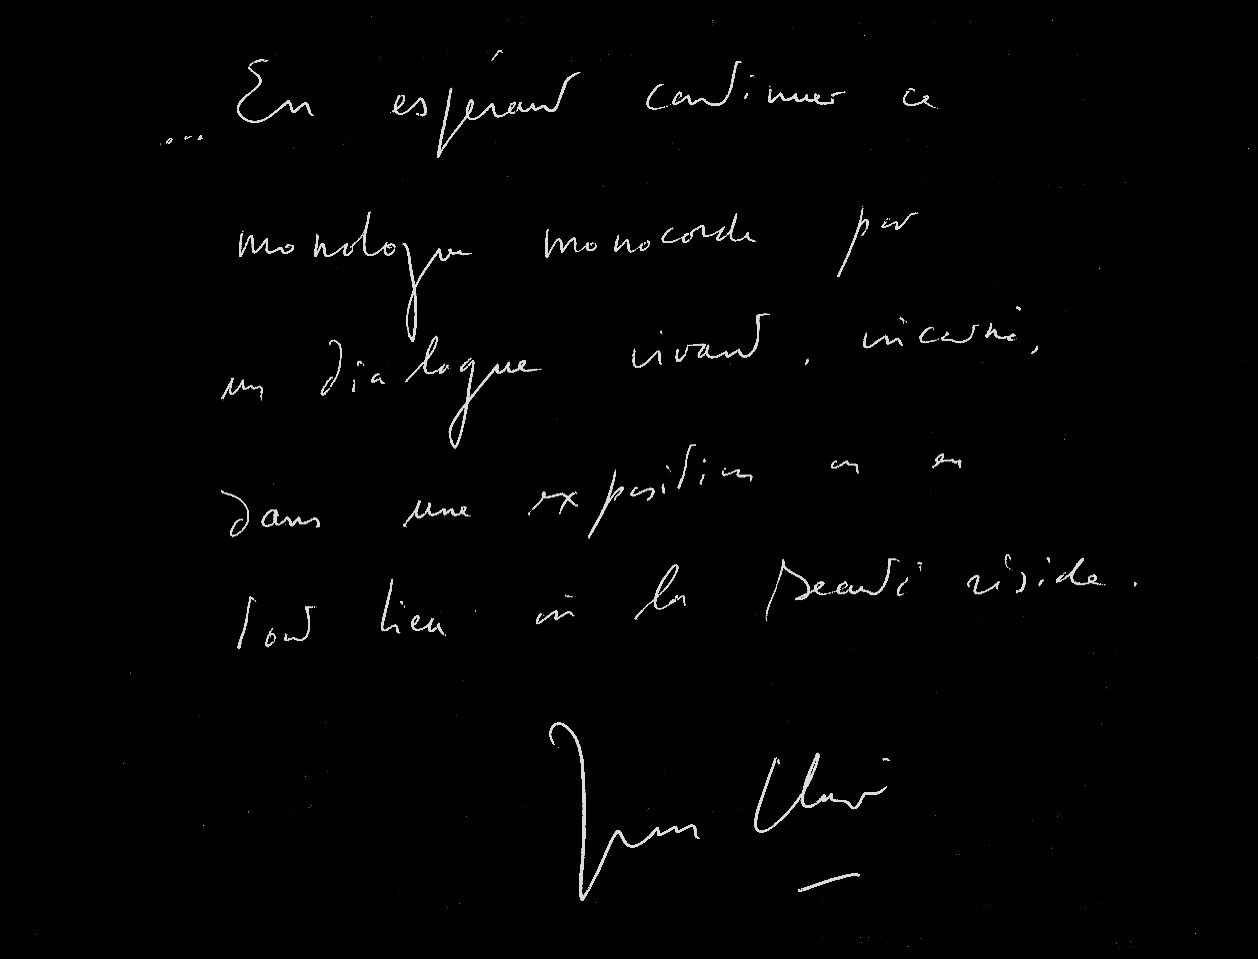 ... En espérant continuer ce
monologue monocorde par
un dialogue vivant, incarné,
dans une exposition ou en
tout lieu où la Beauté réside.
Jean Clair